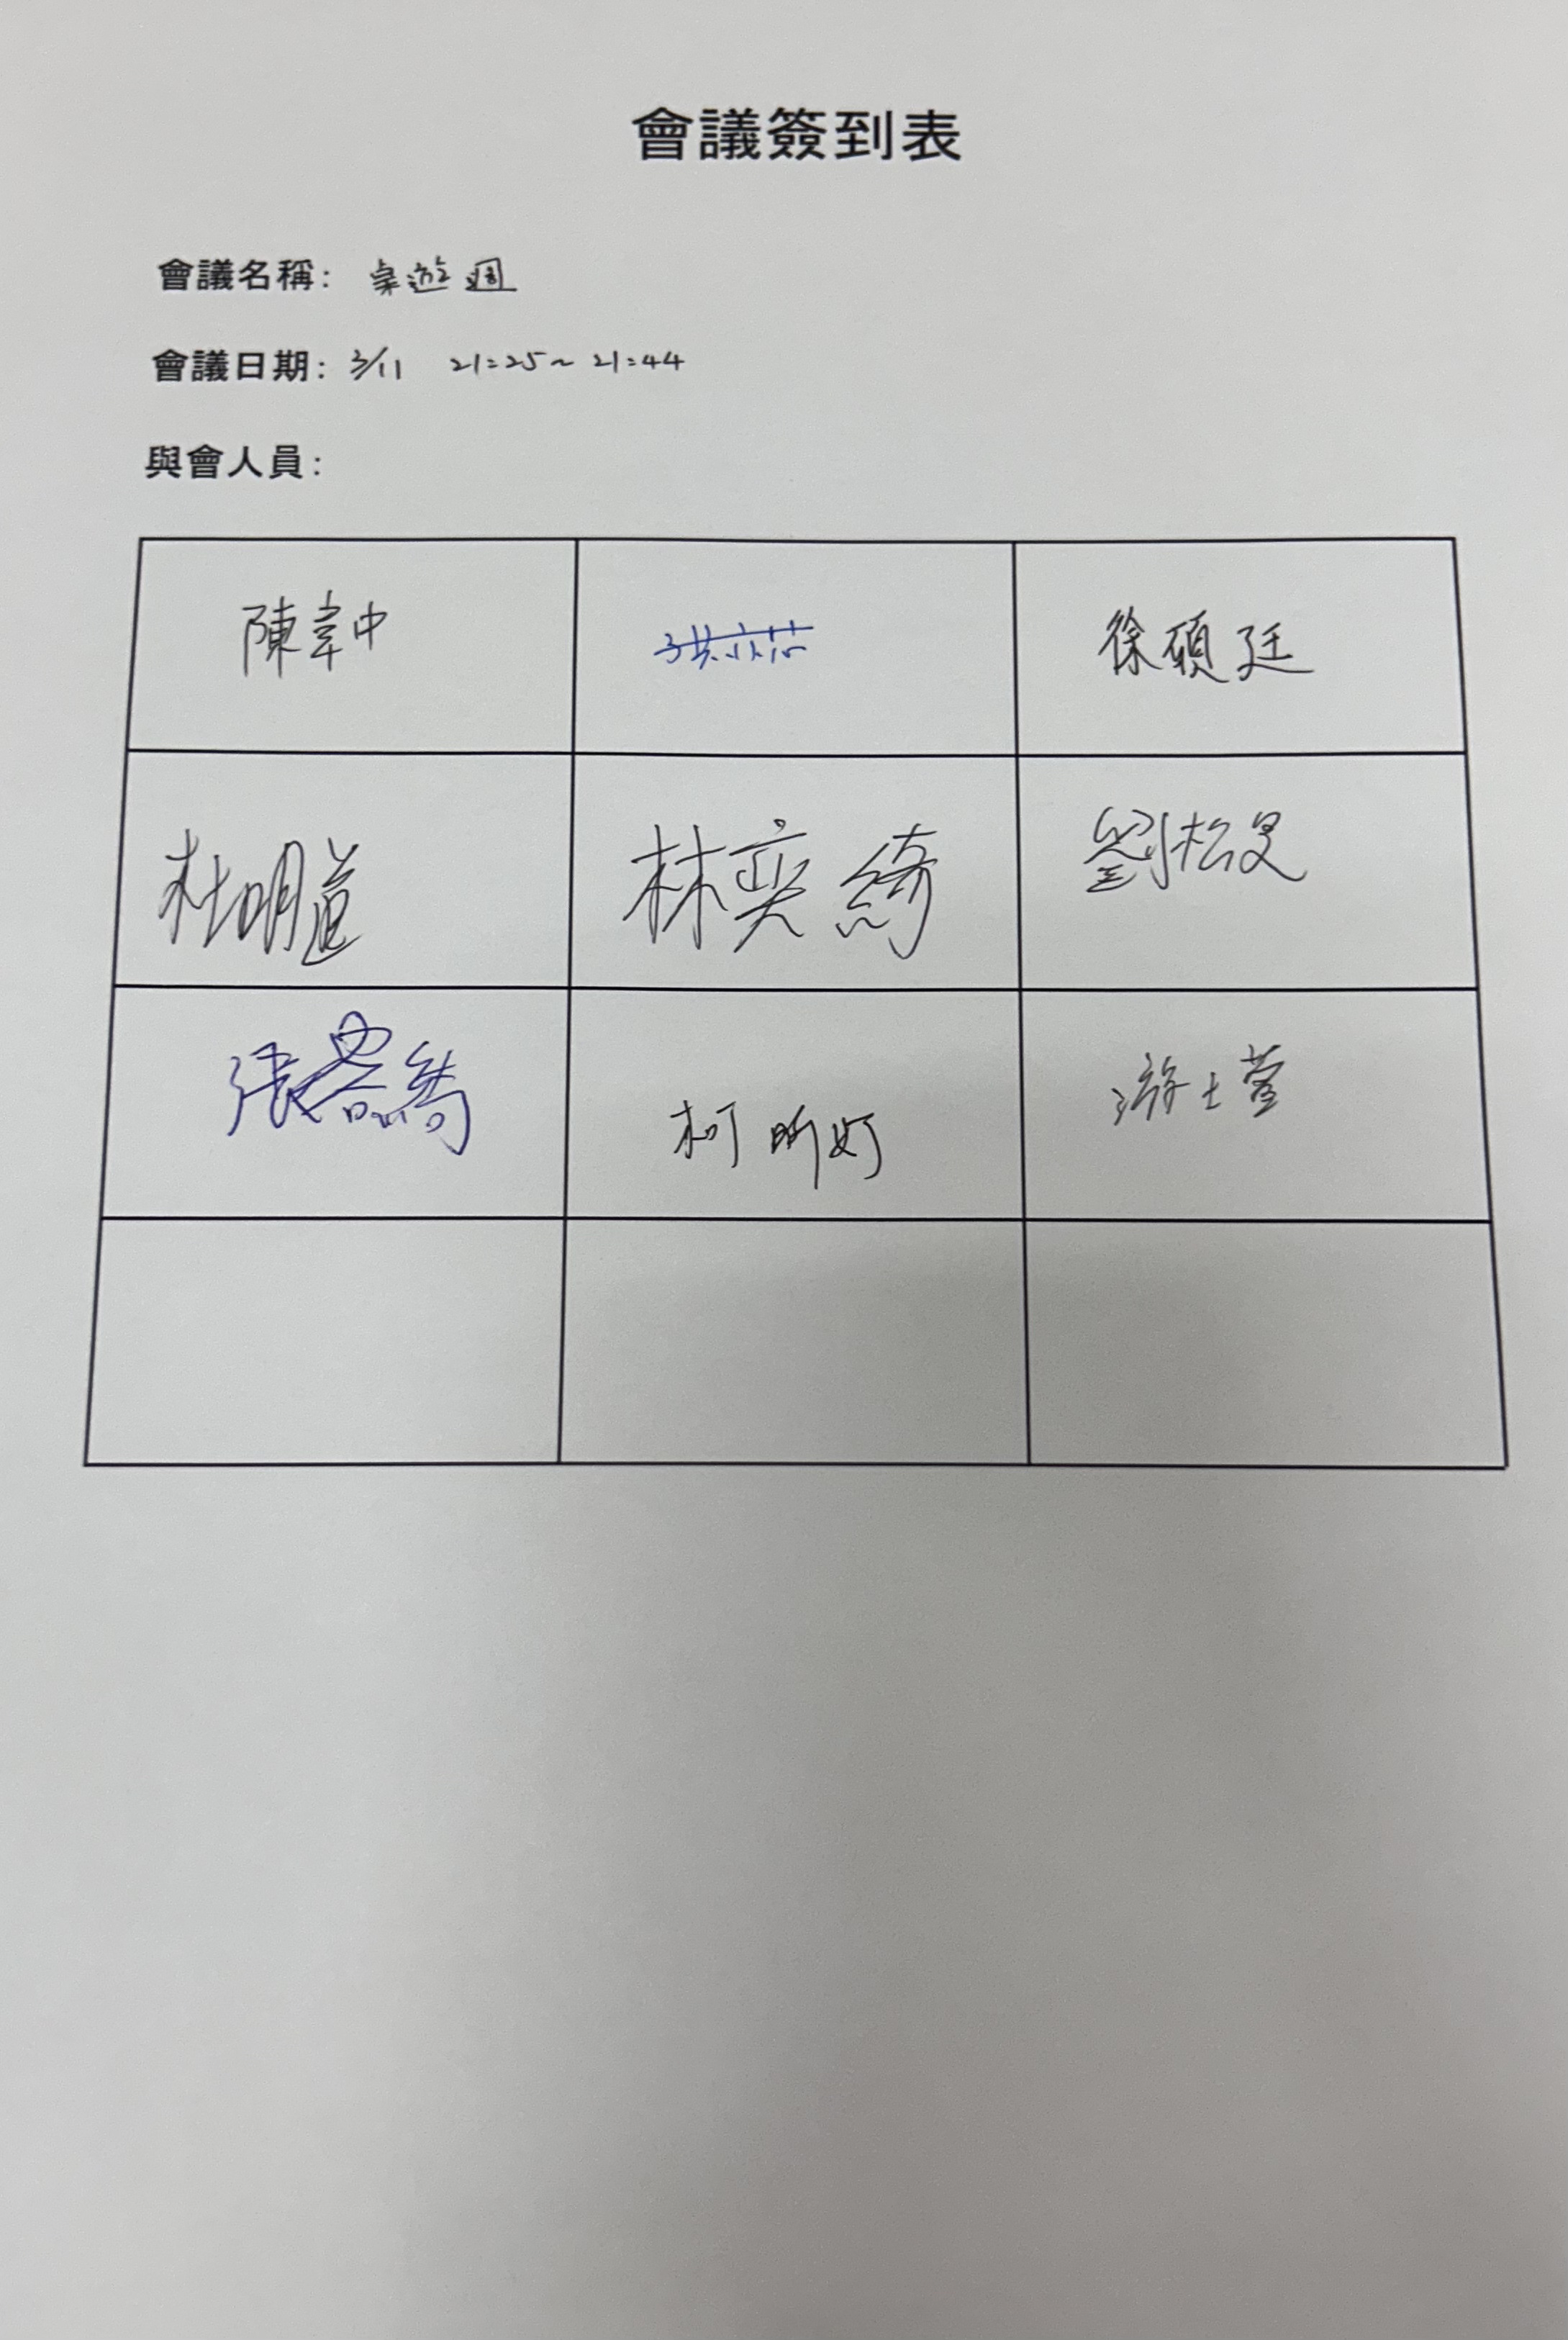 會議簽到表
會議名稱: 桌遊週
會議日期: 3/11 21:25~21:44
與會人員:
陳韋中
徐碩廷
杜明道
林奕綺
劉松旻
張
柯昕妤
游士萱